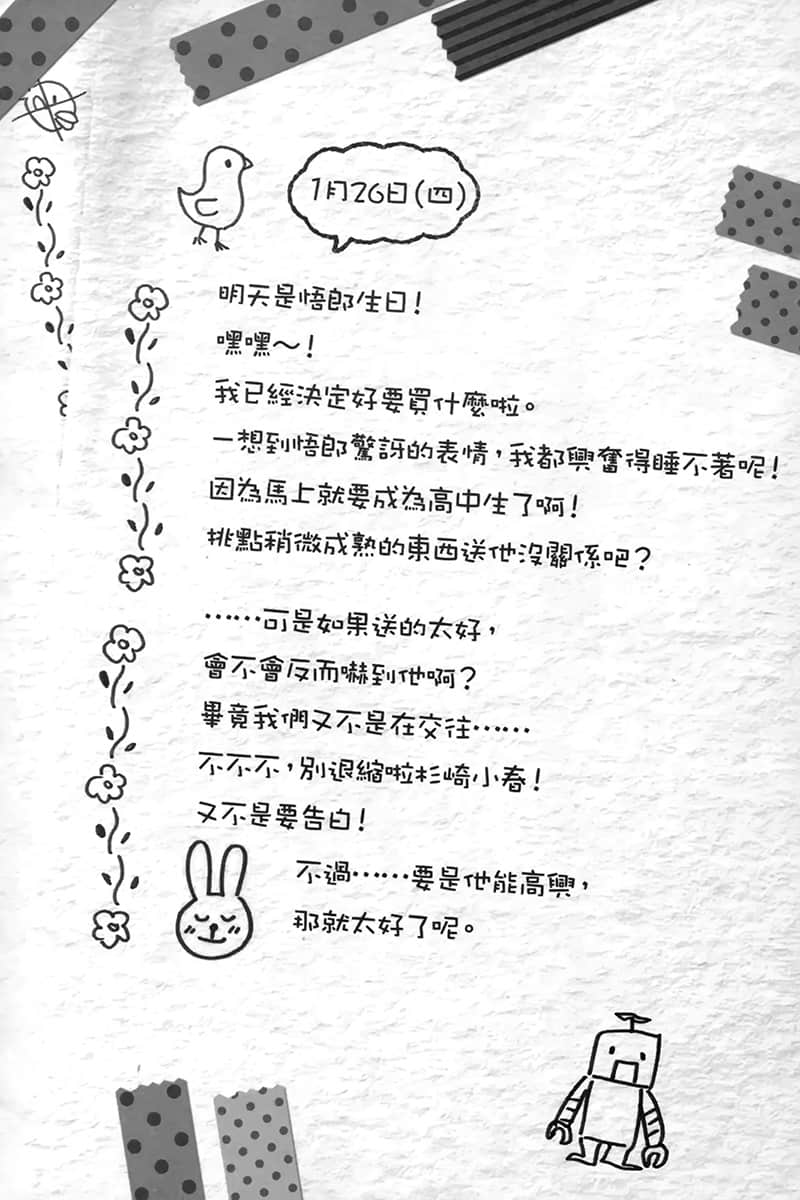 1月26日(四)
明天是悟郎生日！
嘿嘿～！
我已經決定好要買什麼啦。
一想到悟郎驚訝的表情，我都興奮得睡不著呢！
因為馬上就要成為高中生了啊！
挑點稍微成熟的東西送他沒關係吧？
……可是如果送的太好，
會不會反而嚇到他啊？
畢竟我們又不是在交往……
不不不，別退縮啦杉崎小春！
又不是要告白！
不過……要是他能高興，
那就太好了呢。